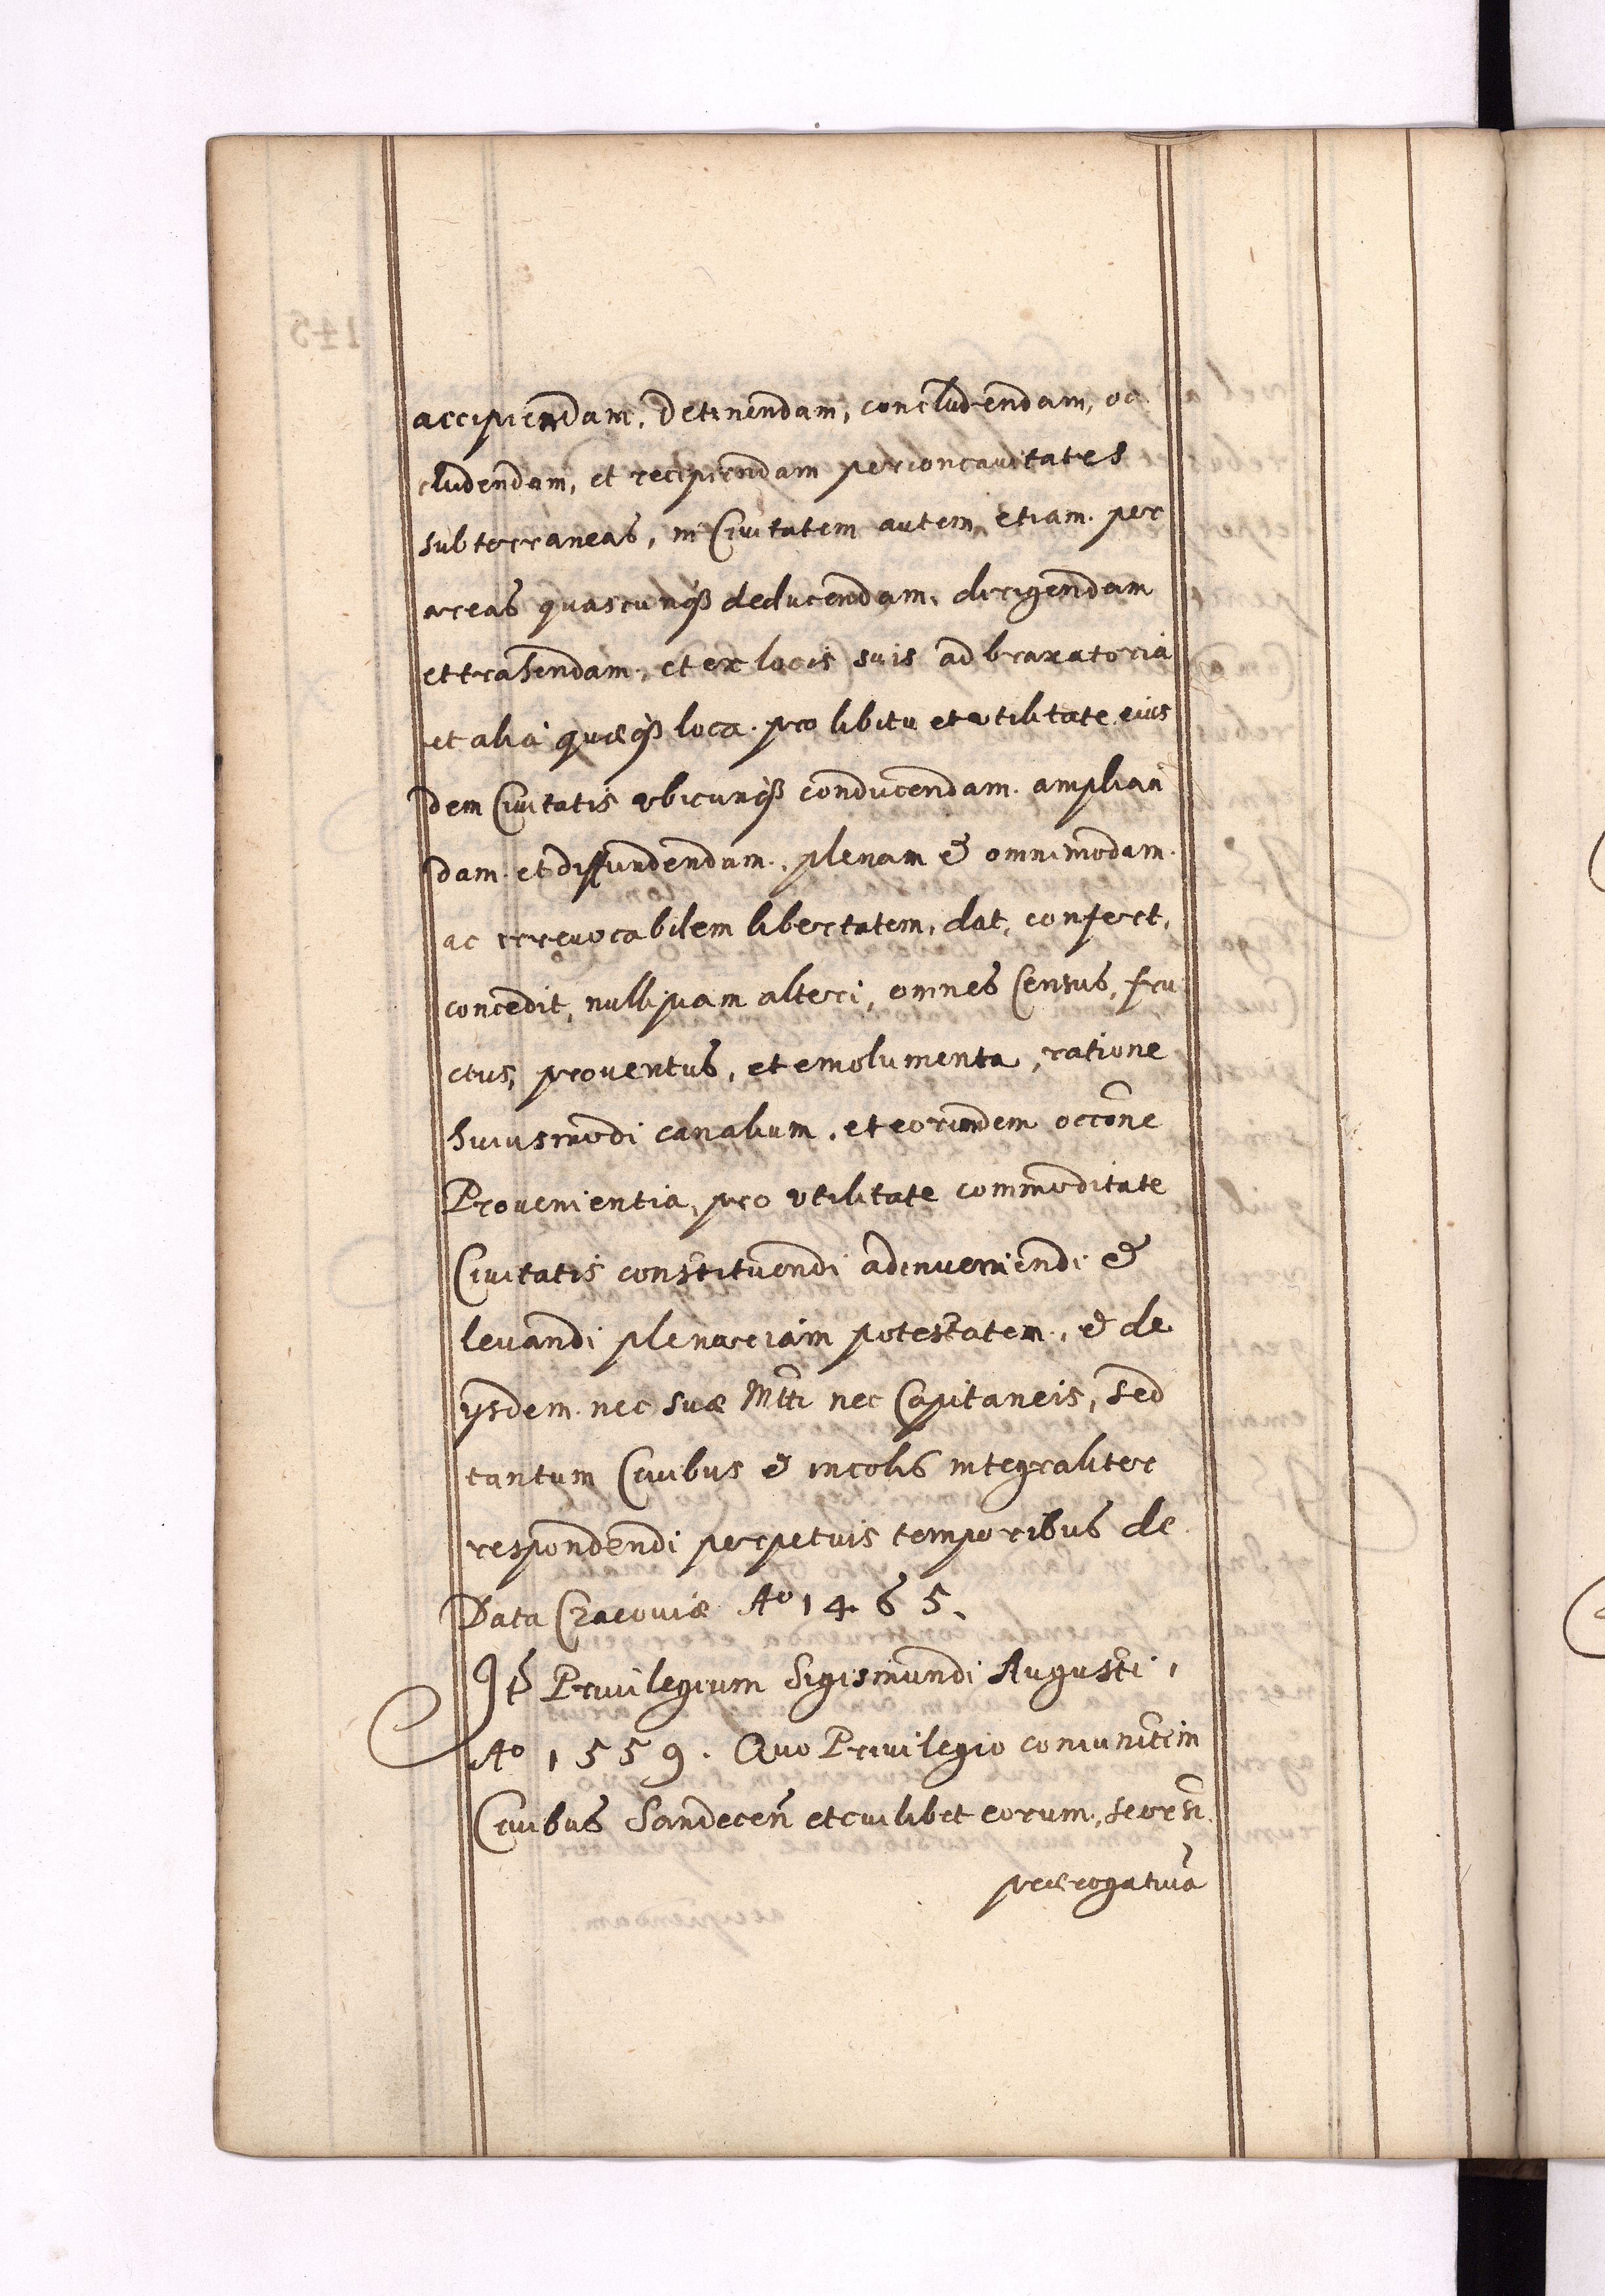 accipiendam, detinendam, concludendam, oc
cludendam, et recipiendam per concauitates
subterraneas, in Ciuitatem autem etiam per
areas quascunqß deducendam, dirigendam
et trahendam, et ex locis suis ad braxatoria
et alia quæqß loca pro libitu et vtilitate eius
dem Ciuitatis vbicunqß conducendam amplian
dam et diffundendam, plenam & omnimodam
ac irreuocabilem libertatem, dat, confert,
concedit, omnes Census, fru
ctus, prouentus, et emolumenta, ratione
huiusmodi canalium, et eorundem occõne
Prouenientia, pro vtilitate commoditate
Ciuitatis constituendi adinueniendi &
leuandi plenariam potestatem, & de
ysdem nec suæ Mtti nec Capitaneis, sed
tantum Ciuibus & incolis integraliter
respondendi perpetuis temporibus de
Data Cracouiæ Aº 1465.
It Priuilegium Sigismundi Augusti,
Aº 1559. Quo Priuilegio coniunctim
Ciuibus Sandeceñ et cuilibet eorum, seorsi
prærogatiua
145
accipiendam